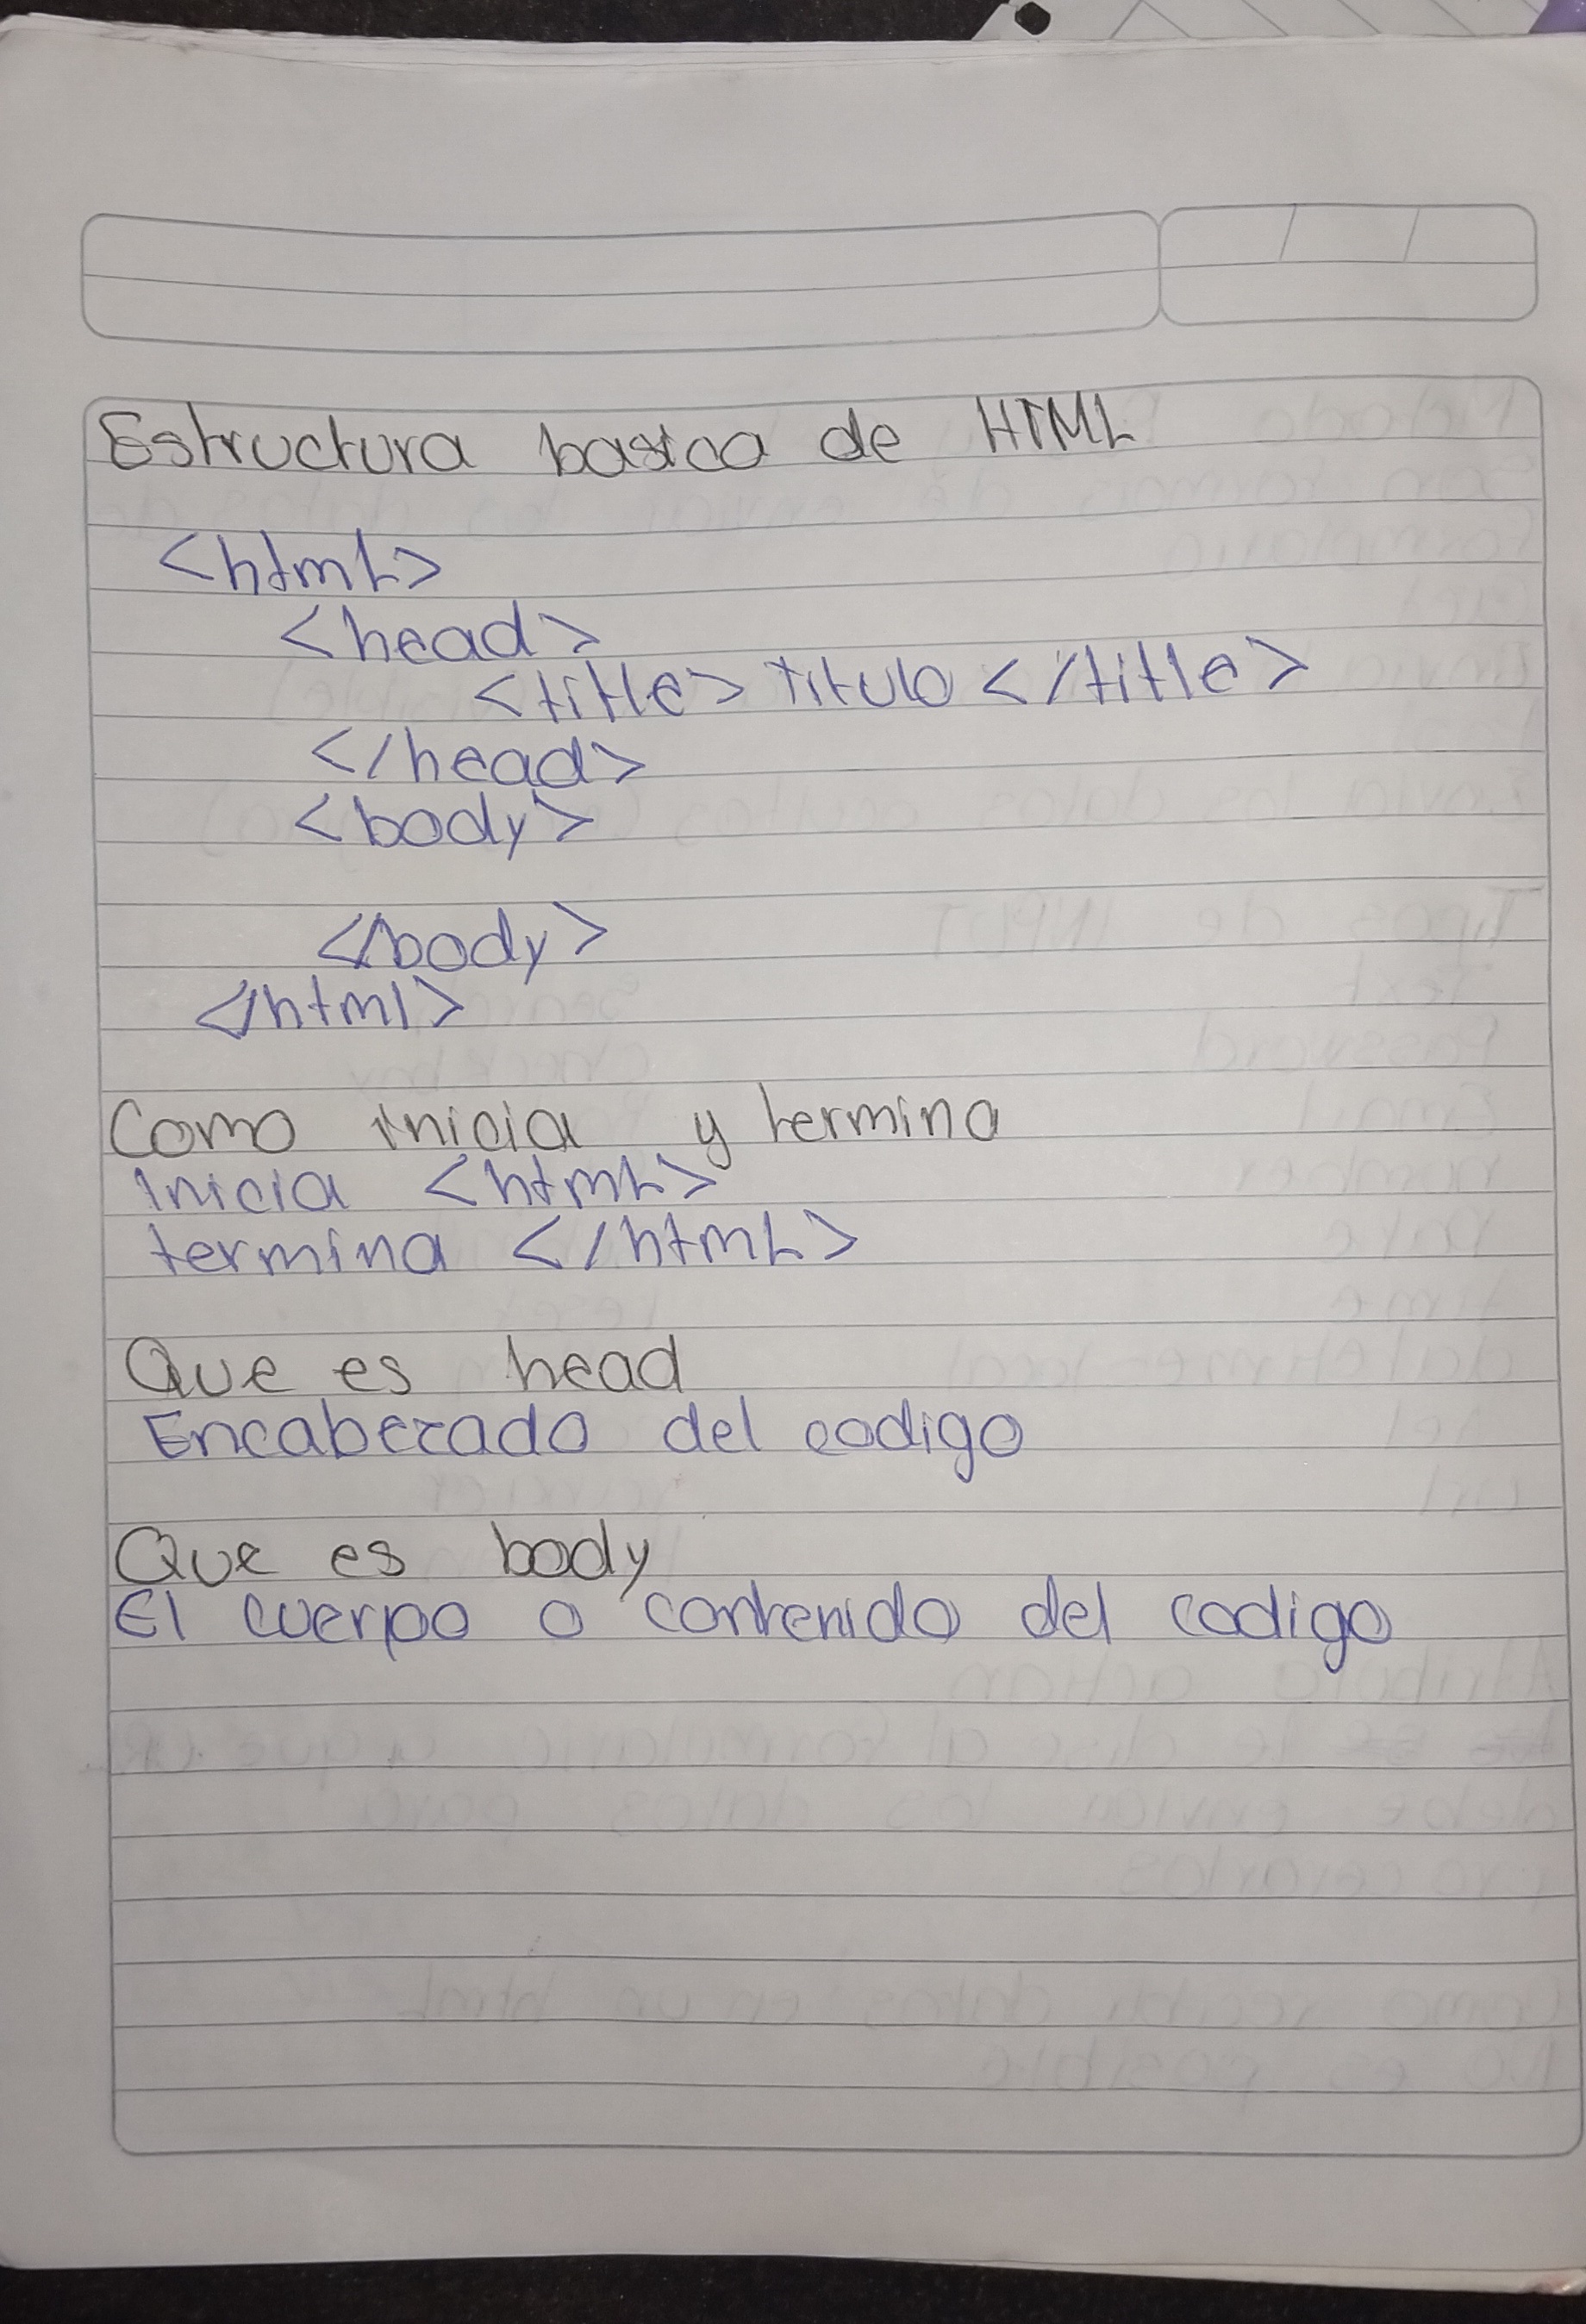 Estructura basica de HTML
<html>
<head>
<title> titulo </title>
</head>
<body>
</body>
</html>
Como inicia y termina
Inicia <html>
termina </html>
Que es head
Encabezado del codigo
Que es body
El cuerpo o contenido del codigo